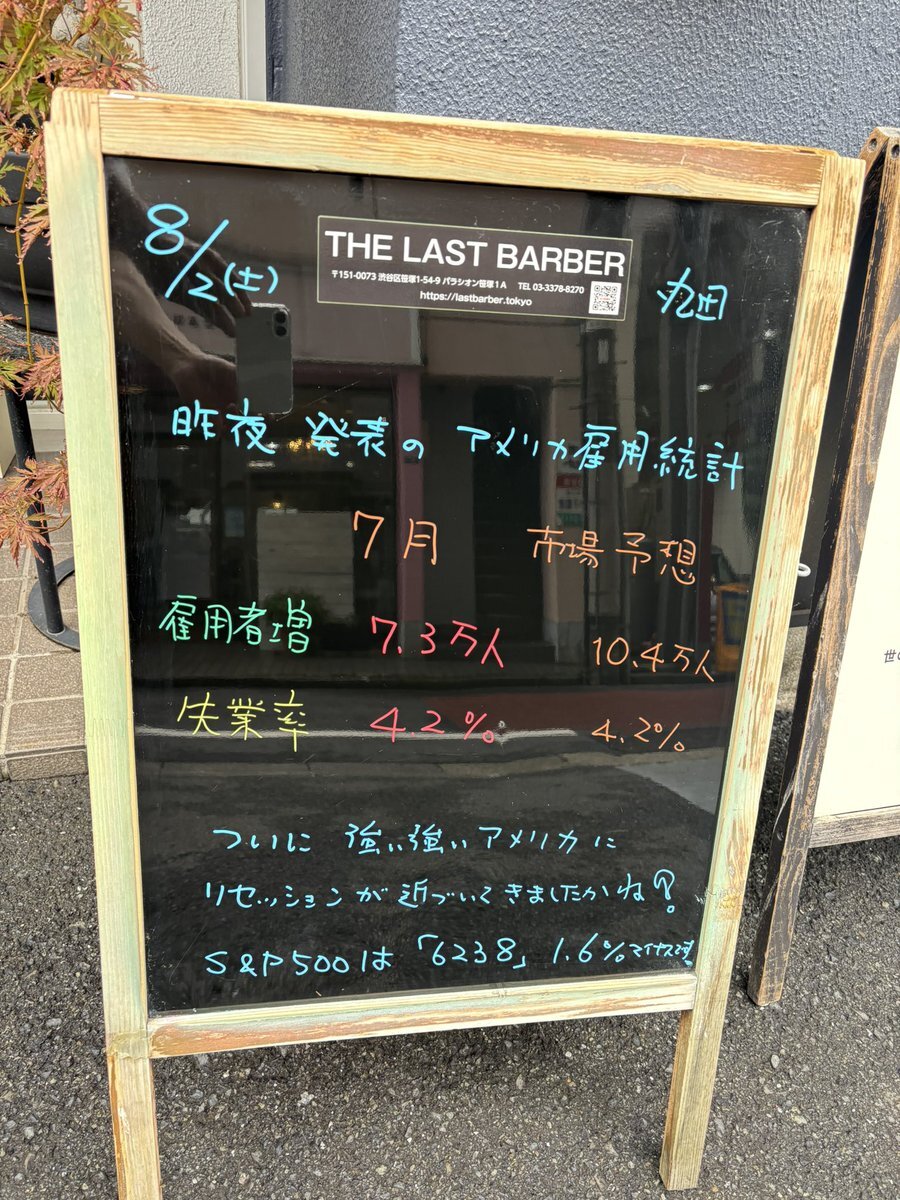 8/2(土)
THE LAST BARBER
〒151-0073 渋谷区笹塚1-54-9 パラシオン笹塚1A TEL 03-3378-8270
https://lastbarber.tokyo
丸田
昨夜 発表の アメリカ雇用統計
7月 市場予想
雇用者増 7.3万人 10.4万人
失業率 4.2% 4.2%
ついに 強い強いアメリカに
リセッションが近づいてきましたかね?
S&P500は「6238」1.6%マイナスです!
世の